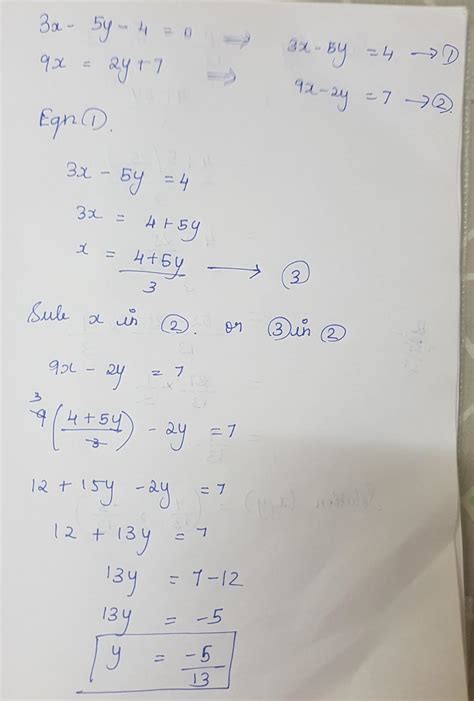 3x - 5y - 4 = 0 ⟹ 3x - 5y = 4 → ①
9x = 2y + 7 ⟹ 9x - 2y = 7 → ②
Eqn ①.
3x - 5y = 4
3x = 4 + 5y
x = (4 + 5y)/3 → ③
Sub x in ②. or ③ in ②
9x - 2y = 7
3
9 ((4 + 5y)/3) - 2y = 7
12 + 15y - 2y = 7
12 + 13y = 7
13y = 7 - 12
13y = -5
y = -5/13